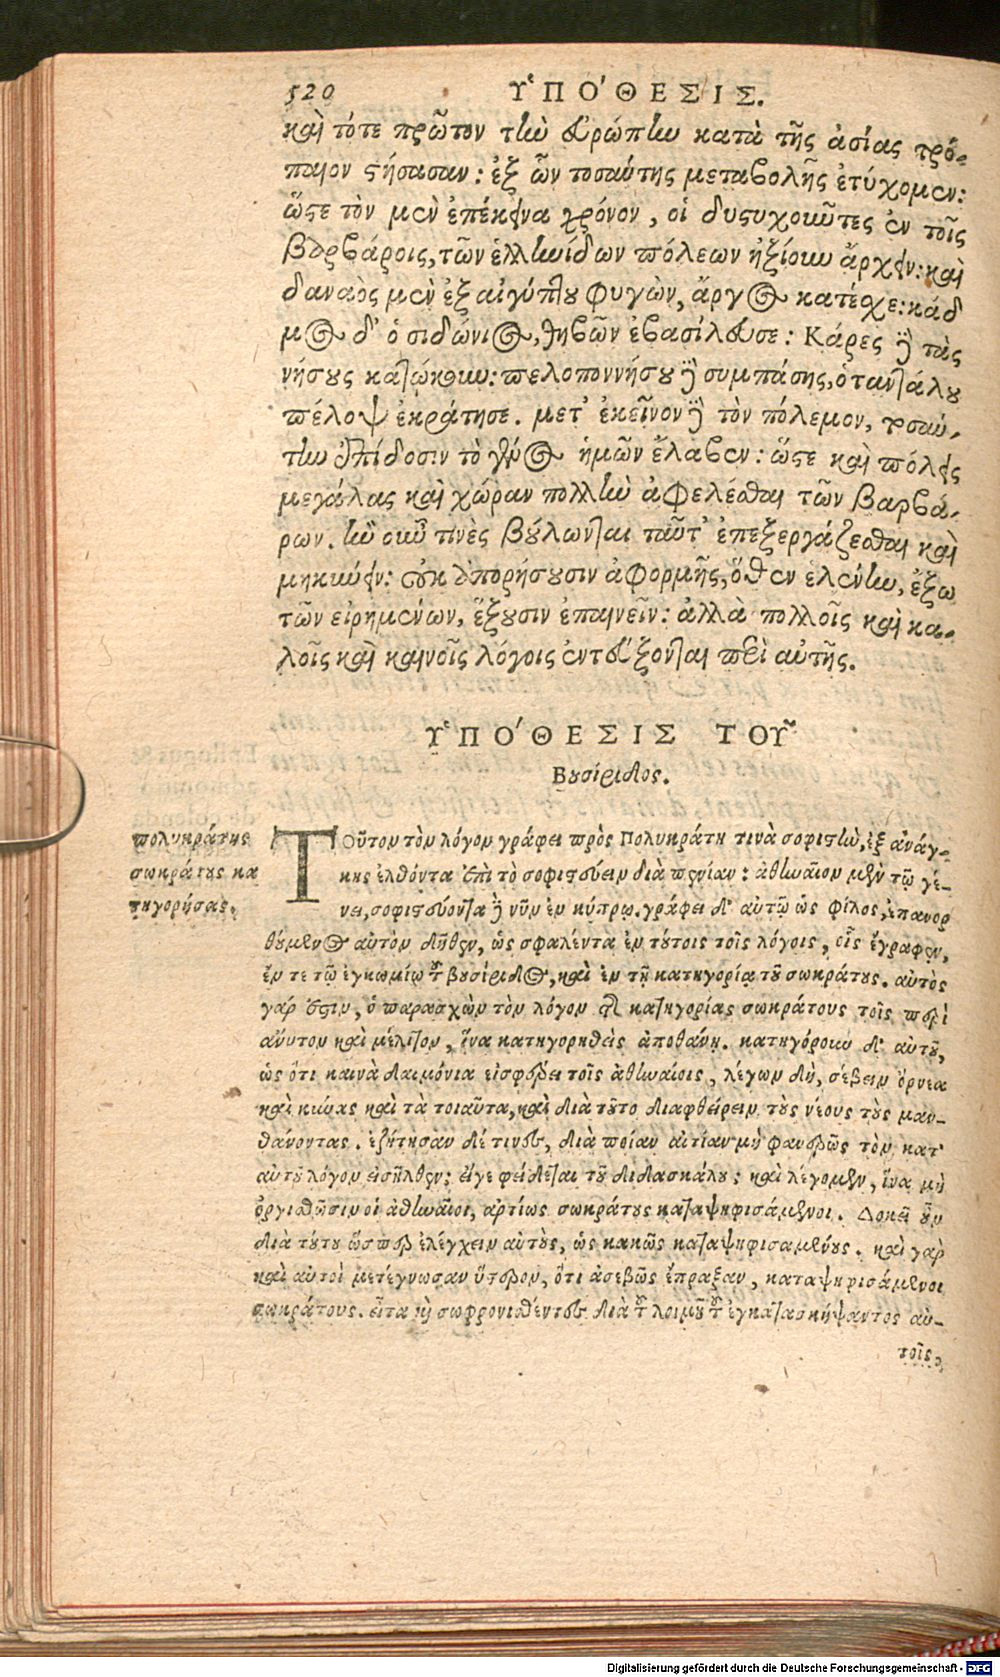 520 ὙΠΌΘΕΣΙΣ.
καὶ τότε πρῶτον τὴν ἐυρώπην κατὰ τῆς ἀσίας τρό-
παιον στήσασαν: ἐξ ὧν τοσαύτης μεταβολῆς ἐτύχομεν:
ὥςε τὸν μὲν ἐπέκεινα χρόνον, οἱ δυςυχοῦντες ἐν τοῖς
βαρβάροις, τῶν ἑλληνίδων πόλεων ἠξίουν ἄρχειν: καὶ
δαναὸς μὲν ἐξ αἰγύπτου φυγὼν, ἄργος κατέχε: κάδ
μος δ' ὁ σιδώνιος, θηβῶν ἐβασίλευσε: Κάρες δὲ τὰς
νήσους κατῴκουν: πελοποννήσου δὲ συμπάσης, ὁ ταντάλου
πέλοψ ἐκράτησε. μετ' ἐκεῖνον δὲ τὸν πόλεμον, τοσαύ-
την ἐπίδοσιν τὸ γένος ἡμῶν ἔλαβεν: ὥςε καὶ πόλεις
μεγάλας καὶ χώραν πολλὴν ἀφελέσθαι τῶν βαρβά-
ρων. ἢν οὖν τινὲς βούλωνται ταῦτ' ἐπεξεργάζεσθαι καὶ
μηκύνειν: οὐκ ἀπορήσουσιν ἀφορμῆς, ὅθεν ἑλένην, ἔξω
τῶν εἰρημένων, ἕξουσιν ἐπαινεῖν: ἀλλὰ πολλοῖς καὶ κα-
λοῖς καὶ καινοῖς λόγοις ἐντεύξονται περὶ αὐτῆς.
ὙΠΌΘΕΣΙΣ ΤΟΥ͂
Βουσίριδος.
πολυκράτης
σωκράτους κα
τηγορήσας.
Τοῦτον τὸν λόγον γράφει πρὸς Πολυκράτη τινὰ σοφιστὴν, ἐξ ἀνάγ-
κης ἐλθόντα ἐπὶ τὸ σοφιστεύειν διὰ πενίαν: ἀθηναῖον μὲν τῷ γέ-
νει, σοφιστεύοντα δὲ νῦν ἐν κύπρῳ. γράφει δ' αὐτῷ ὡς φίλος, ἐπανορ
θούμενος αὐτὸν δῆθεν, ὡς σφαλέντα ἐν τούτοις τοῖς λόγοις, οἷς ἔγραφεν,
ἔν τε τῷ ἐγκωμίῳ τοῦ βουσίριδος, καὶ ἐν τῇ κατηγορίᾳ τοῦ σωκράτους. αὐτὸς
γάρ ἐστιν, ὁ παρασχὼν τὸν λόγον τῆς κατηγορίας σωκράτους τοῖς περὶ
ἄνυτον καὶ μέλιτον, ἵνα κατηγορηθεὶς ἀποθάνῃ. κατηγόρουν δ' αὐτοῦ,
ὡς ὅτι καινὰ δαιμόνια εἰσφέρει τοῖς ἀθηναίοις, λέγων δὴ, σέβειν ὄρνεα
καὶ κύνας καὶ τὰ τοιαῦτα, καὶ διὰ τοῦτο διαφθείρειν τοὺς νέους τοὺς μαν-
θάνοντας. ἐζήτησαν δέ τινες, διὰ ποίαν αἰτίαν μὴ φανερῶς τὸν κατ'
αὐτοῦ λόγον εἰσῆλθεν; εἴγε φείδεται τοῦ διδασκάλου; καὶ λέγομεν, ἵνα μὴ
ὀργισθῶσιν οἱ ἀθηναῖοι, ἀρτίως σωκράτους καταψηφισάμενοι. Δοκεῖ οὖν
διὰ τούτου ὥσπερ ἐλέγχειν αὐτοὺς, ὡς κακῶς καταψηφισαμένους. καὶ γὰρ
καὶ αὐτοὶ μετέγνωσαν ὕστερον, ὅτι ἀσεβῶς ἔπραξαν, καταψηφισάμενοι
σωκράτους. εἶτα καὶ σωφρονισθέντες διὰ τοῦ λοιμοῦ τοῦ ἐγκατασκήψαντος αὐ-
τοῖς,
Digitalisierung gefördert durch die Deutsche Forschungsgemeinschaft - DFG